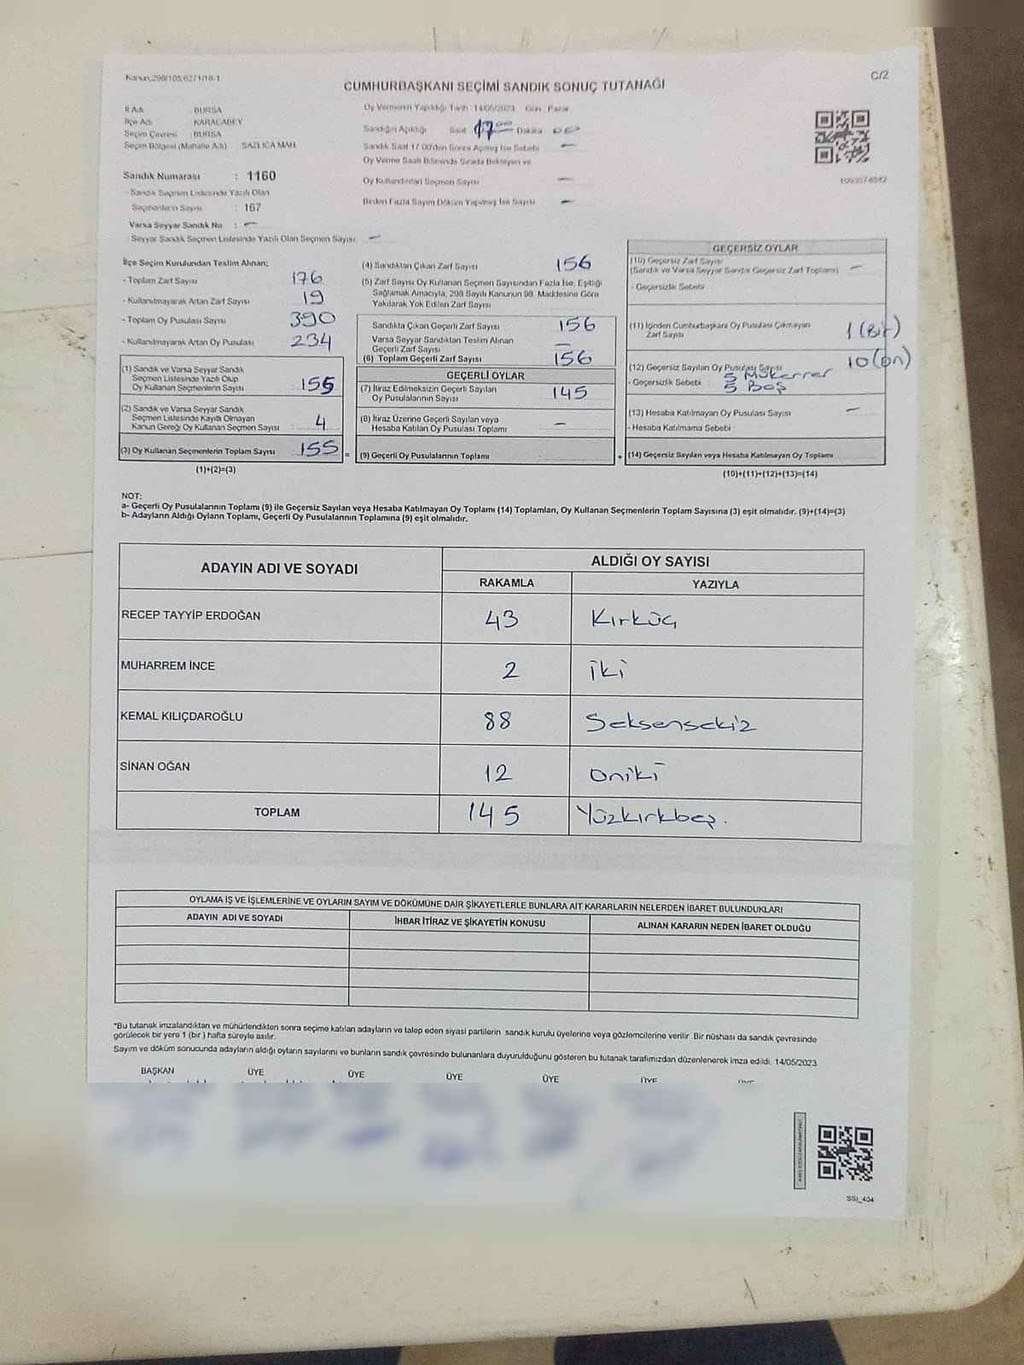 Kanun:298/105,6271/18-1
C/2
CUMHURBAŞKANI SEÇİMİ SANDIK SONUÇ TUTANAĞI
İl Adı : BURSA
İlçe Adı : KARACABEY
Seçim Çevresi : BURSA
Seçim Bölgesi (Mahalle Adı) SAZLICA MAH.
Sandık Numarası : 1160
- Sandık Seçmen Listesinde Yazılı Olan
Seçmenlerin Sayısı : 167
Varsa Seyyar Sandık No : —
- Seyyar Sandık Seçmen Listesinde Yazılı Olan Seçmen Sayısı : —
Oy Vermenin Yapıldığı Tarih :14/05/2023 Gün : Pazar
Sandığın Açıldığı Saat 17 00 Dakika 00
Sandık Saat 17.00'den Sonra Açılmış İse Sebebi —
Oy Verme Saati Bitiminde Sırada Bekleyen ve
Oy Kullandırılan Seçmen Sayısı —
Birden Fazla Sayım Döküm Yapılmış İse Sayısı —
İlçe Seçim Kurulundan Teslim Alınan;
- Toplam Zarf Sayısı 176
- Kullanılmayarak Artan Zarf Sayısı 19
- Toplam Oy Pusulası Sayısı 390
- Kullanılmayarak Artan Oy Pusulası 234
(1) Sandık ve Varsa Seyyar Sandık
Seçmen Listesinde Yazılı Olup
Oy Kullanan Seçmenlerin Sayısı 155
(2) Sandık ve Varsa Seyyar Sandık
Seçmen Listesinde Kayıtlı Olmayan
Kanun Gereği Oy Kullanan Seçmen Sayısı 4
(3) Oy Kullanan Seçmenlerin Toplam Sayısı 155 =
(1)+(2)=(3)
(4) Sandıktan Çıkan Zarf Sayısı 156
(5) Zarf Sayısı Oy Kullanan Seçmen Sayısından Fazla İse, Eşitliği
Sağlamak Amacıyla, 298 Sayılı Kanunun 98. Maddesine Göre
Yakılarak Yok Edilen Zarf Sayısı
Sandıkta Çıkan Geçerli Zarf Sayısı 156
Varsa Seyyar Sandıktan Teslim Alınan
Geçerli Zarf Sayısı —
(6) Toplam Geçerli Zarf Sayısı 156
GEÇERLİ OYLAR
(7) İtiraz Edilmeksizin Geçerli Sayılan
Oy Pusulalarının Sayısı 145
(8) İtiraz Üzerine Geçerli Sayılan veya
Hesaba Katılan Oy Pusulası Toplamı —
(9) Geçerli Oy Pusulalarının Toplamı +
GEÇERSİZ OYLAR
(10) Geçersiz Zarf Sayısı
(Sandık ve Varsa Seyyar Sandık Geçersiz Zarf Toplamı) —
- Geçersizlik Sebebi
(11) İçinden Cumhurbaşkanı Oy Pusulası Çıkmayan
Zarf Sayısı 1 (Bir)
(12) Geçersiz Sayılan Oy Pusulası Sayısı 10 (on)
- Geçersizlik Sebebi 5 Mükerrer
5 Boş
(13) Hesaba Katılmayan Oy Pusulası Sayısı —
- Hesaba Katılmama Sebebi
(14) Geçersiz Sayılan veya Hesaba Katılmayan Oy Toplamı
(10)+(11)+(12)+(13)=(14)
NOT:
a- Geçerli Oy Pusulalarının Toplamı (9) ile Geçersiz Sayılan veya Hesaba Katılmayan Oy Toplamı (14) Toplamları, Oy Kullanan Seçmenlerin Toplam Sayısına (3) eşit olmalıdır. (9)+(14)=(3)
b- Adayların Aldığı Oyların Toplamı, Geçerli Oy Pusulalarının Toplamına (9) eşit olmalıdır.
ADAYIN ADI VE SOYADI ALDIĞI OY SAYISI
RAKAMLA YAZIYLA
RECEP TAYYİP ERDOĞAN 43 Kırküç
MUHARREM İNCE 2 iki
KEMAL KILIÇDAROĞLU 88 Seksensekiz
SİNAN OĞAN 12 oniki
TOPLAM 145 Yüzkırkbeş.
OYLAMA İŞ VE İŞLEMLERİNE VE OYLARIN SAYIM VE DÖKÜMÜNE DAİR ŞİKAYETLERLE BUNLARA AİT KARARLARIN NELERDEN İBARET BULUNDUKLARI
ADAYIN ADI VE SOYADI İHBAR İTİRAZ VE ŞİKAYETİN KONUSU ALINAN KARARIN NEDEN İBARET OLDUĞU
*Bu tutanak imzalandıktan ve mühürlendikten sonra seçime katılan adayların ve talep eden siyasi partilerin sandık kurulu üyelerine veya gözlemcilerine verilir. Bir nüshası da sandık çevresinde
görülecek bir yere 1 (bir) hafta süreyle asılır.
Sayım ve döküm sonucunda adayların aldığı oyların sayılarını ve bunların sandık çevresinde bulunanlara duyurulduğunu gösteren bu tutanak tarafımızdan düzenlenerek imza edildi. 14/05/2023
BAŞKAN ÜYE ÜYE ÜYE ÜYE ÜYE ÜYE
SSI_404